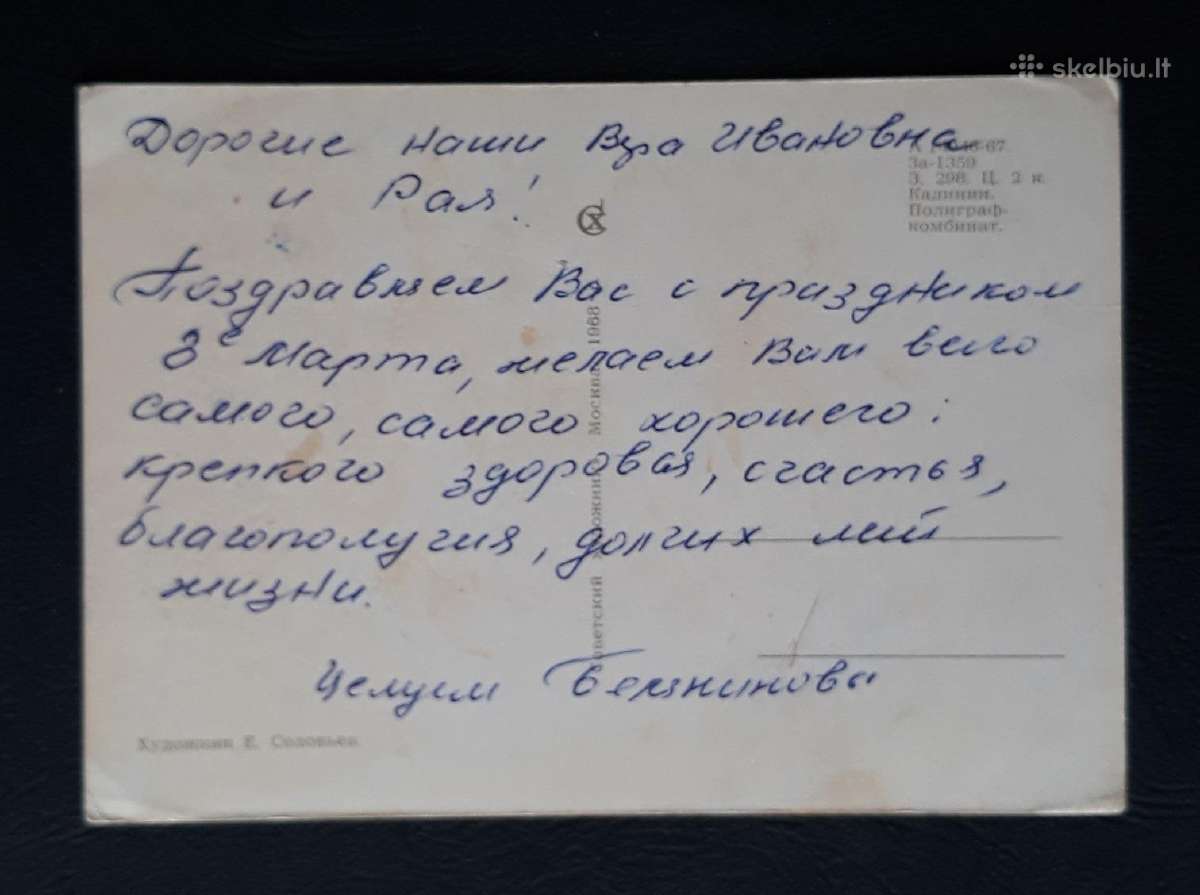 skelbiu.lt
Дорогие наши Вера Ивановна
и Рая!
67.
За-1359
З. 298. Ц. 2 к.
Калинин.
Полиграф-
комбинат.
Поздравляем Вас с праздником
8е Марта, желаем Вам всего
самого, самого хорошего:
крепкого здоровья, счастья,
благополучия, долгих лет
жизни.
Целуем
Советский художник Москва 1968
Художник Е. Соловьев